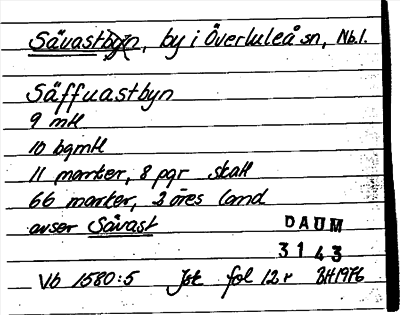 Sävastbyn, by i Överluleå sn, Nb.l.
Säffuastbyn
9 mtl
10 bgmtl
11 manter, 8 pgr skatt
66 marker, 2 öres land
avser Sävast
DAUM
3143
Vb 1580:5 Jbk fol 12r BH1976